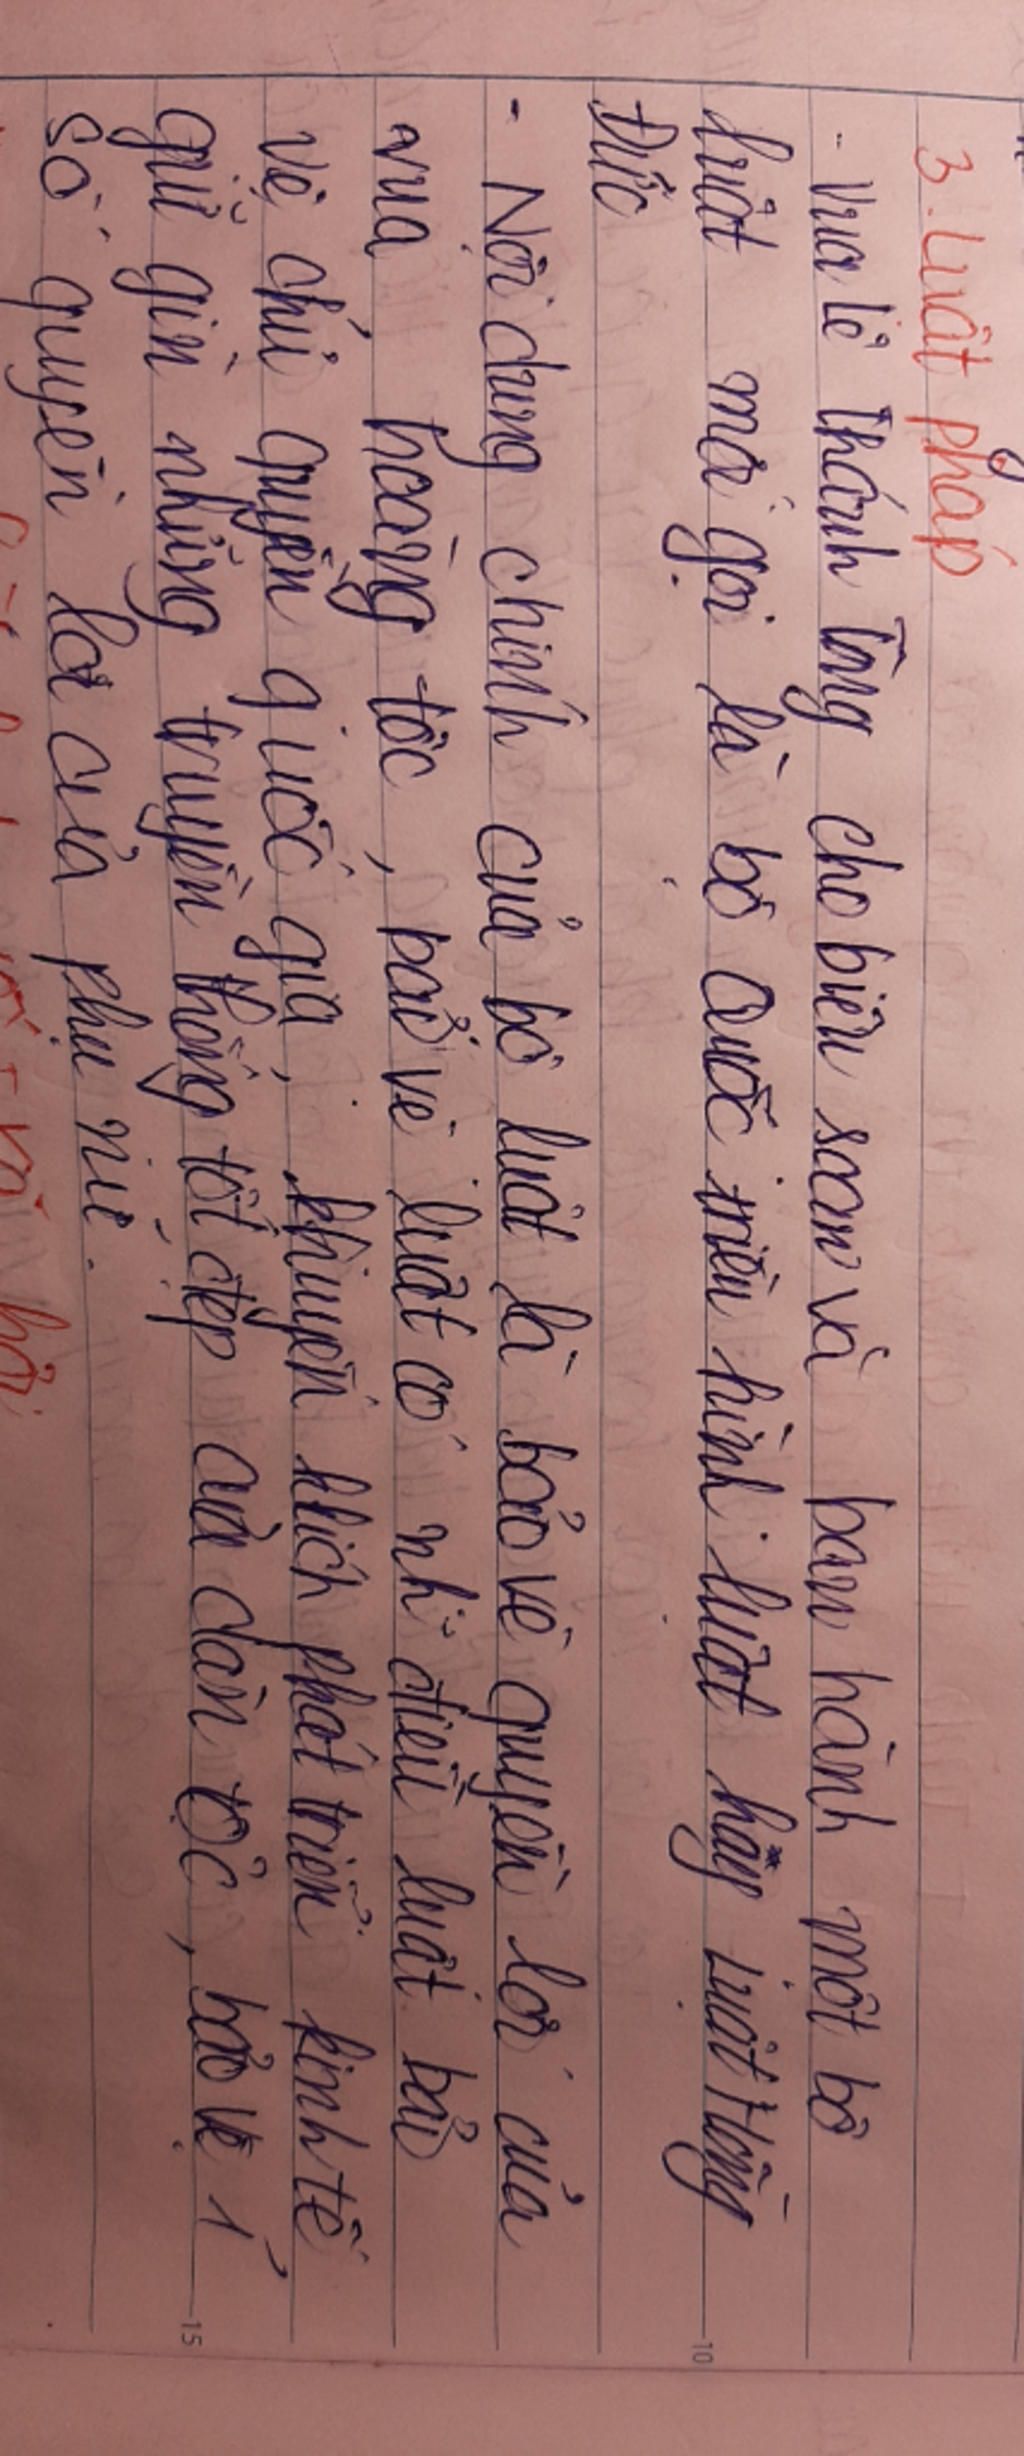 3. Luật pháp
- Vua lê Thánh Tông cho biên soạn và ban hành một bộ
luật mới gọi là bộ Quốc triều hình luật hay Luật Hồng
Đức
- Nội dung chính của bộ luật là bảo vệ quyền lợi của
vua, hoàng tộc, bảo vệ luật có nh~ điều luật bảo
vệ chủ quyền quốc gia, khuyến khích phát triển kinh tế,
giữ gìn những truyền thống tốt đẹp của dân tộc, bảo vệ 1
số quyền lợi của phụ nữ.
10
15